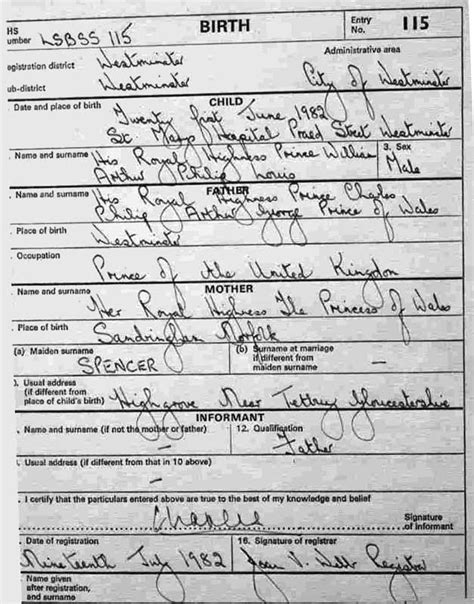 HS BIRTH Entry 115
umber LSBSS 115 No.
egistration district Westminster Administrative area
ub-district Westminster City of Westminster
CHILD
. Date and place of birth Twenty first June 1982
St. Mary's Hospital Praed Street Westminster
. Name and surname His Royal Highness Prince William 3. Sex
Arthur Philip Louis Male
FATHER
. Name and surname His Royal Highness Prince Charles
Philip Arthur George Prince of Wales
. Place of birth
Westminster
. Occupation
Prince of the United Kingdom
MOTHER
. Name and surname Her Royal Highness The Princess of Wales
. Place of birth
Sandringham Norfolk
(a) Maiden surname (b) Surname at marriage
SPENCER if different from
maiden surname —
). Usual address
(if different from
place of child's birth) Highgrove Near Tetbury Gloucestershire
INFORMANT
. Name and surname (if not the mother or father) 12. Qualification
— Father
. Usual address (if different from that in 10 above)
—
. I certify that the particulars entered above are true to the best of my knowledge and belief
Charles Signature
of informant
. Date of registration 16. Signature of registrar
Nineteenth July 1982 Joan V. Webb Registrar
. Name given
after registration,
and surname —